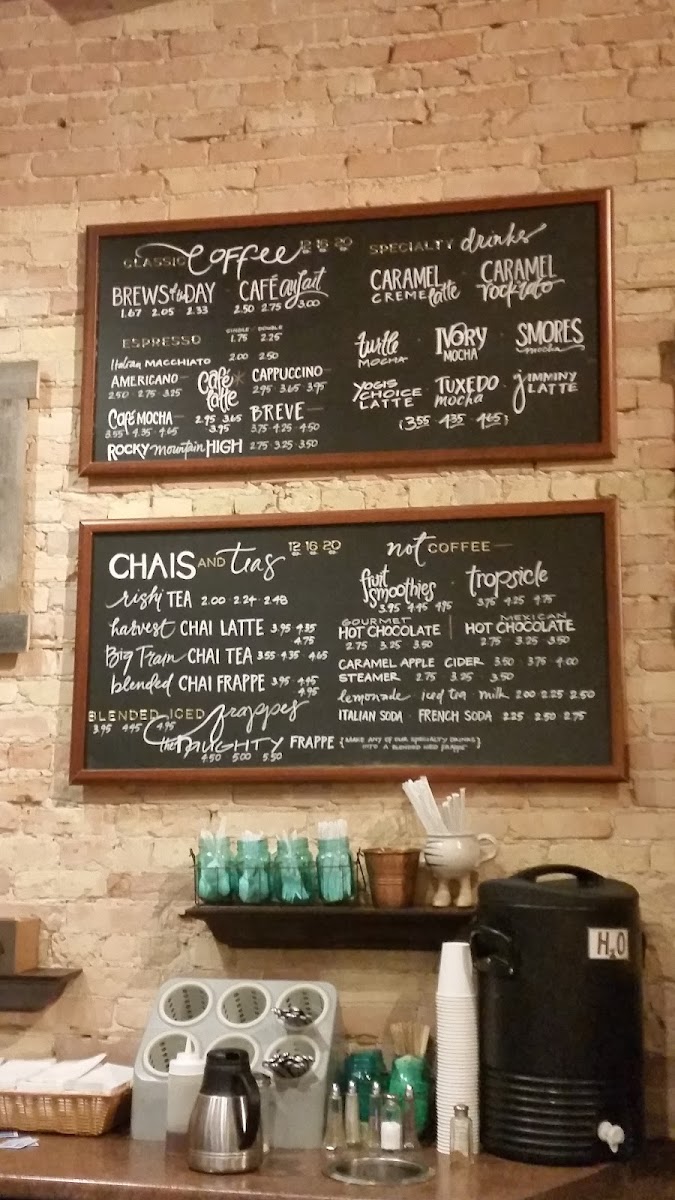 CLASSIC coffee 12 16 20
oz oz oz
BREWS of the DAY
1.67 2.05 2.33
CAFÉ au lait
2.50 2.75 3.00
ESPRESSO
SINGLE / DOUBLE
1.75 2.25
Italian MACCHIATO 2.00 2.50
AMERICANO
2.50 2.75 3.25
Café latte
2.95 3.65
3.95
CAPPUCCINO
2.95 3.65 3.95
Café MOCHA
3.55 4.35 4.65
BREVE
3.75 4.25 4.50
ROCKY mountain HIGH 2.75 3.25 3.50
SPECIALTY drinks
CARAMEL
CREME latte
CARAMEL
turtle
MOCHA
IVORY
MOCHA
SMORES
mocha
YOGIS
CHOICE
LATTE
TUXEDO
mocha
jIMMINY
LATTE
{3.55 4.35 4.65}
CHAIS AND teas 12 16 20
oz oz oz
rishi TEA 2.00 2.24 2.48
harvest CHAI LATTE 3.95 4.35
4.75
Big Train CHAI TEA 3.55 4.35 4.65
blended CHAI FRAPPE 3.95 4.45
4.95
BLENDED ICED frappes
3.95 4.45 4.95
the NAUGHTY FRAPPE {MAKE ANY OF OUR SPECIALTY DRINKS
INTO A BLENDED ICED FRAPPE}
4.50 5.00 5.50
not COFFEE
fruit
smoothies
3.95 4.45 4.95
tropsicle
3.75 4.25 4.75
GOURMET
HOT CHOCOLATE
2.75 3.25 3.50
MEXICAN
HOT CHOCOLATE
2.75 3.25 3.50
CARAMEL APPLE CIDER 3.50 3.75 4.00
STEAMER 2.75 3.25 3.50
lemonade · iced tea · milk 2.00 2.25 2.50
ITALIAN SODA · FRENCH SODA 2.25 2.50 2.75
H2O